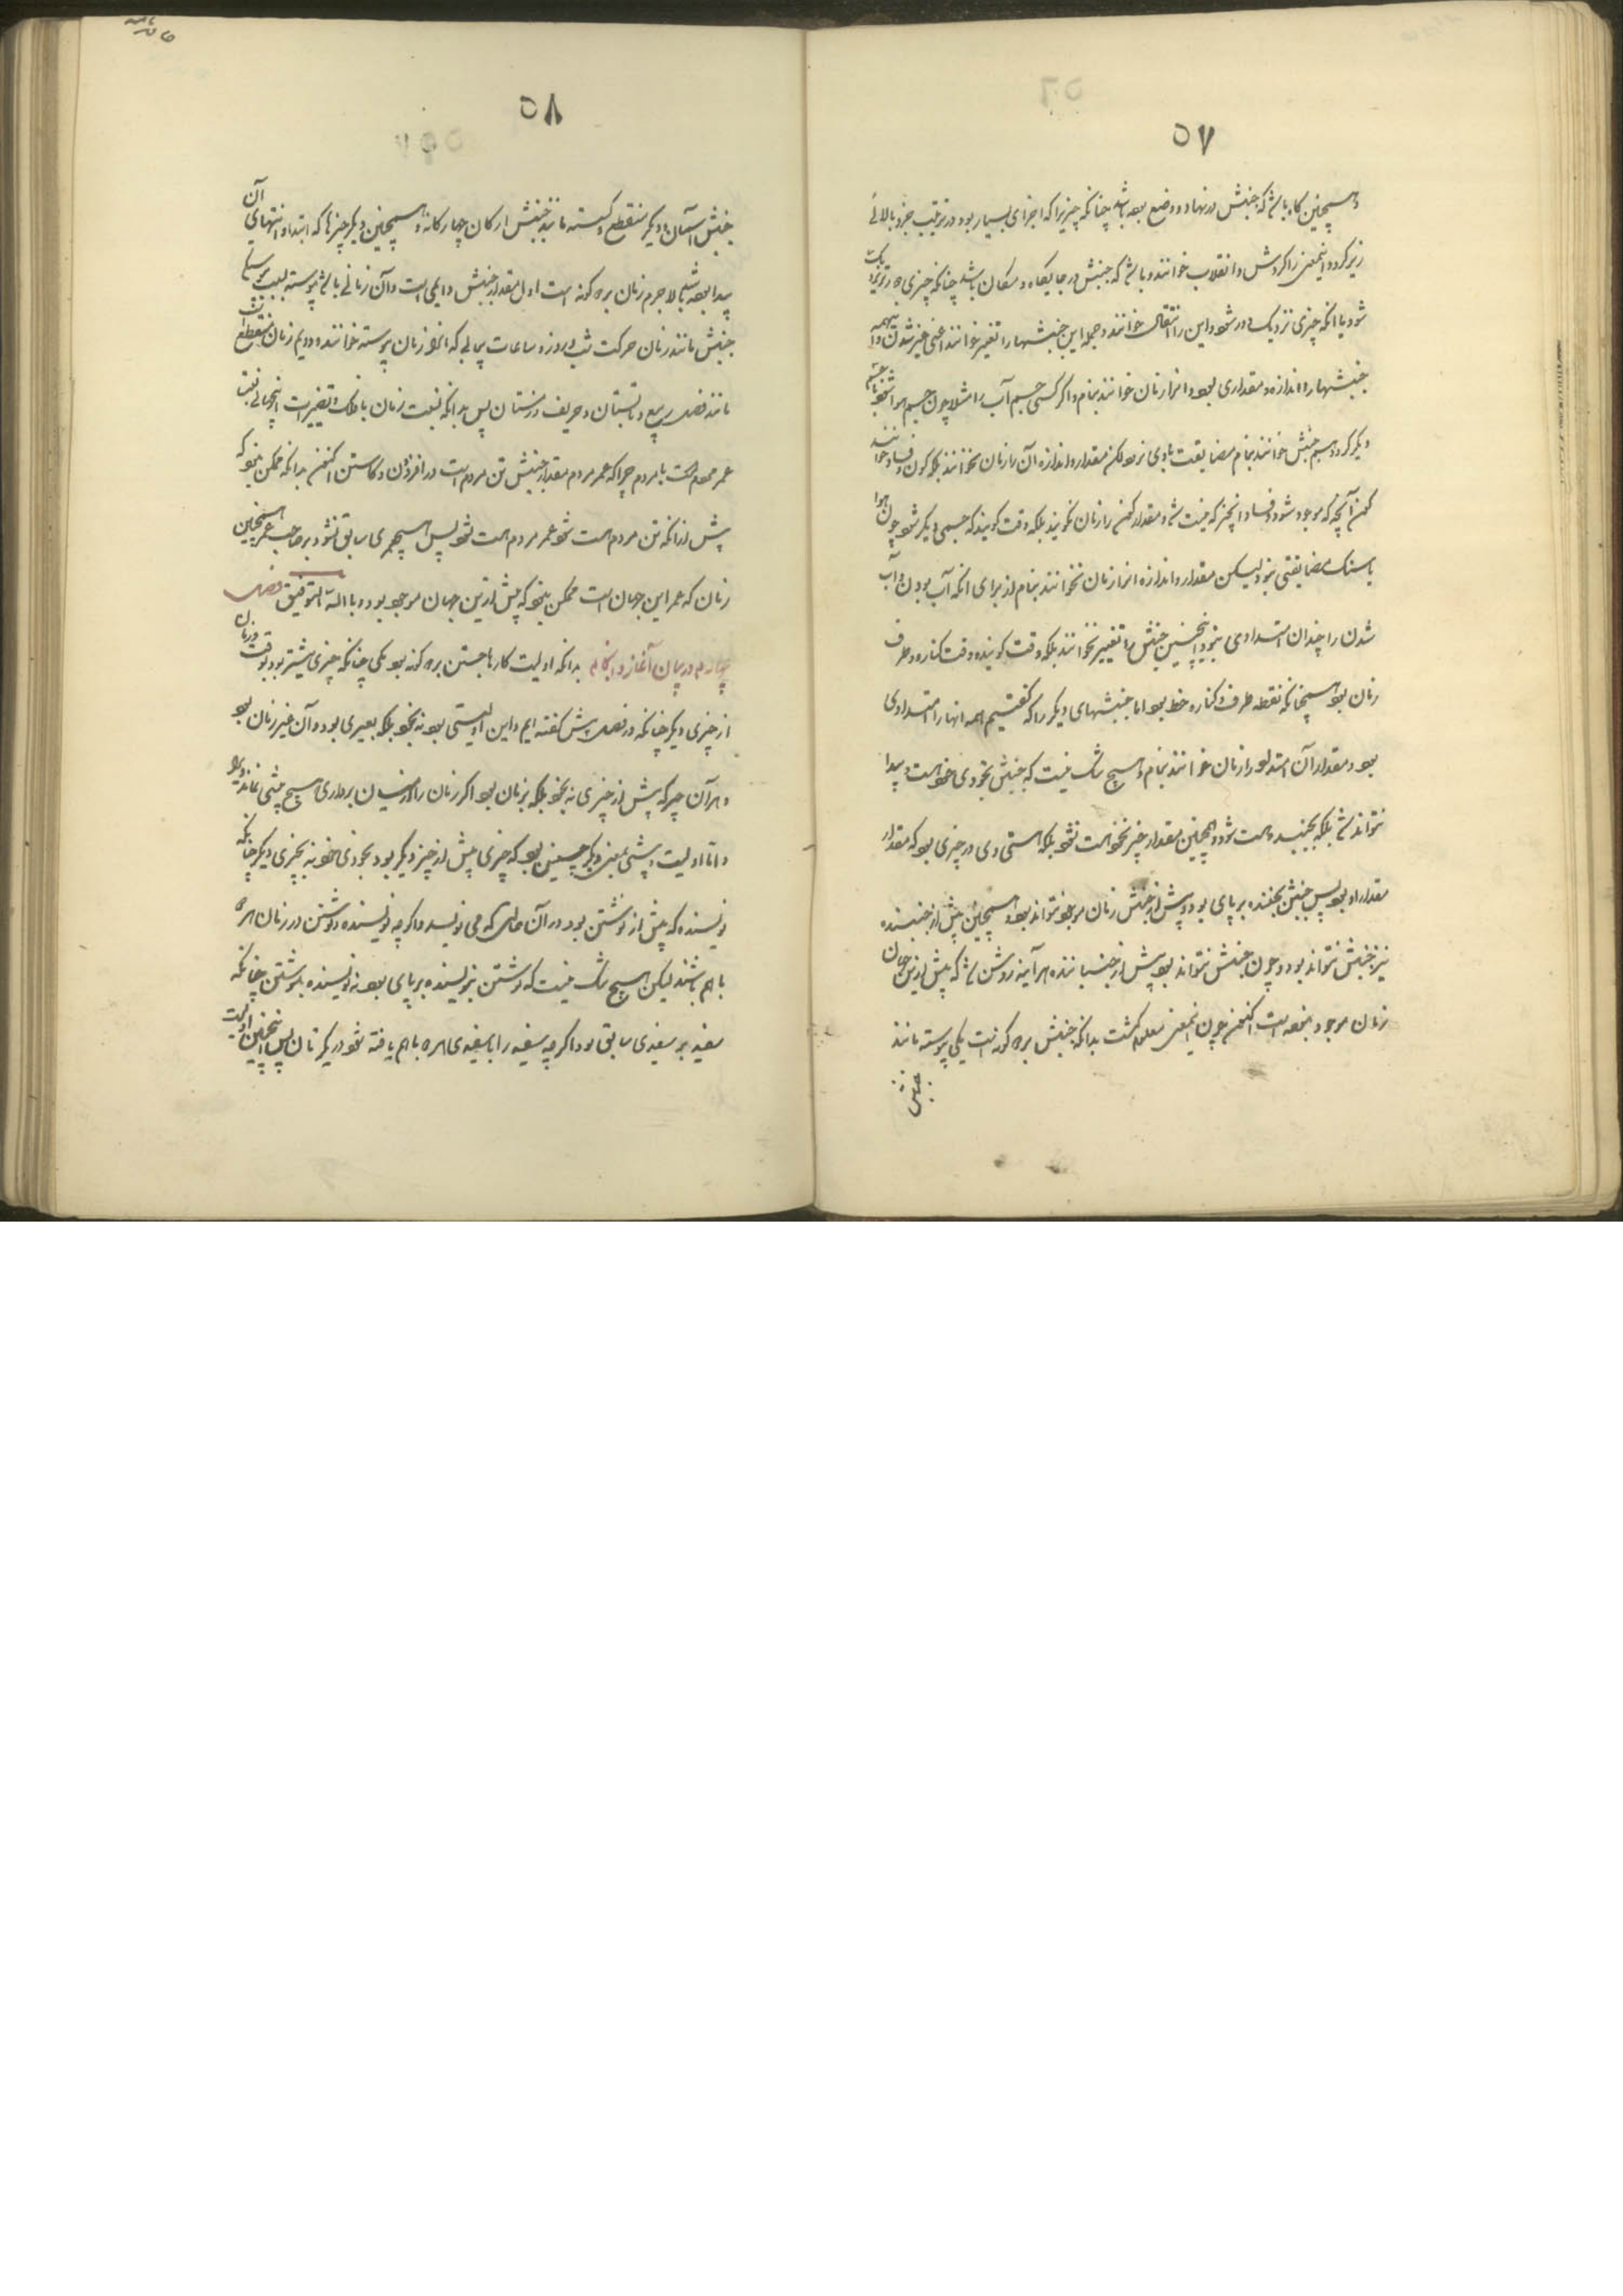 ۵۷
و همچنین گاه باشد که جنبش در نهاد و وضع بود باشد چنانکه چیزیرا که اجزای بسیار بود در ترتیب جزو بالائی
زیر گردد و اینمعنی را گردش و انقلاب خوانند و باشد که جنبش در جایگاه و مکان باشد چنانکه چیزی دور نزدیک
شود یا آنکه چیزی نزدیک دور شود و این را انتقال خوانند و جمله این جنبشها را تغیر خوانند اعنی غیر شدن و این همه
جنبشها را اندازه و مقداری بود و آنرا زمان خوانند بنام و اگر کسی جسم آب را مثلا چون جسم هوا شود یا جسمی
دیگر گردد هم جنبش خوانند بنام مضایقت با وی نرود لکن مقدار و اندازه آن را زمان نخوانند بلکه کون و فساد خوانند
کون آنچه که موجود شود و فساد آنچیز که نیست شد و مقدار کون را زمان نگویند بلکه وقت گویند که جسمی دیگر شود چون هوا
یا سنگ مضایقتی نبود لیکن مقدار و اندازه آنرا زمان نخوانند بنام از برای آنکه آب بودن و آب
شدن را چندان امتدادی نبود و اینچنین جنبش را تغییر نخوانند بلکه وقت گویند و وقت کناره و طرف
زمان بود همچنانکه نقطه طرف و کناره خط بود اما جنبشهای دیگر را که گفتیم همه آنها را امتدادی
بود و مقدار آن امتداد را زمان خوانند بنام و هیچ شک نیست که جنبش بخودی خود هست و پیدا
نتواند شد بلکه بجنبنده هست شود و همچنین مقدار چیز بخود هست نشود بلکه هستی وی در چیزی بود که مقدار
مقدار او بود پس جنبش بجنبنده بر پای بود و پیش از جنبش زمان موجود نتواند بود و همچنین پیش از جنبنده
نیز جنبش نتواند بود و چون جنبش نتواند بود پیش از جنباننده هر آینه روشن شد که پیش ازین جهان
زمان موجود نبوده است اکنون چون اینمعنی معلوم گشت بدانکه جنبش بر دو گونه است یکی پیوسته مانند
جنبش
۵۸
جنبش آسمان و دیگر منقطع و گسسته مانند جنبش ارکان چهارگانه و همچنین دیگر چیزها که ابتدا و انتهای آن
پیدا بود باشد لاجرم زمان بر دو گونه است اول مقدار جنبش دایمی است و آن زمانی باشد پیوسته بسبب پیوستگی
جنبش مانند زمان حرکت شب و روز و ساعات پیاپی که آنرا زمان پیوسته خوانند و دویم زمان منقطع است
مانند فصل ربیع و تابستان و خریف و زمستان پس بدانکه نسبت زمان با فلک و تغییرات اینجهانی نسبت
عمر مردم است با مردم چرا که عمر مردم مقدار جنبش تن مردم است در افزودن و کاستن اکنون بدانکه ممکن نبود که
پیش از آنکه تن مردم هست شود عمر مردم هست شود پس هیچ عمری سابق نشود بر صاحب عمر همچنین
زمان که عمر این جهان است ممکن نبود که پیش ازین جهان موجود بود و بالله التوفیق فصل
چهارم در بیان آغاز و انجام بدانکه اولیت کارها جستن بر دو گونه بود یکی چنانکه چیزی پیشتر بود بوقت و زمان
از چیزی دیگر چنانکه در فصل پیش گفته ایم و این اولیتی بود نه بخود بلکه بغیری بود و آن غیر زمان بود
و هر آن چیز که پیش از چیزی نه بخود بلکه بزمان بود اگر زمان را از میان برداری هیچ پیشی نماند ویرا
و اما اولیت و پیشی بمعنی دیگر چنین بود که چیزی پیش از چیز دیگر بود بخودی خود نه بچیزی دیگر چنانکه
نویسنده که پیش از نوشتن بود در آن حال که می نویسد و اگر چه نویسنده و نوشتن در زمان هر دو
با هم باشند لیکن هیچ شک نیست که نوشتن بنویسنده بر پای بود نه نویسنده بنوشتن چنانکه
سفید بر سفیدی سابق بود اگر چه سفید را با سفیدی هر دو با هم یافته شود در یک زمان پس اینچنین اولیت